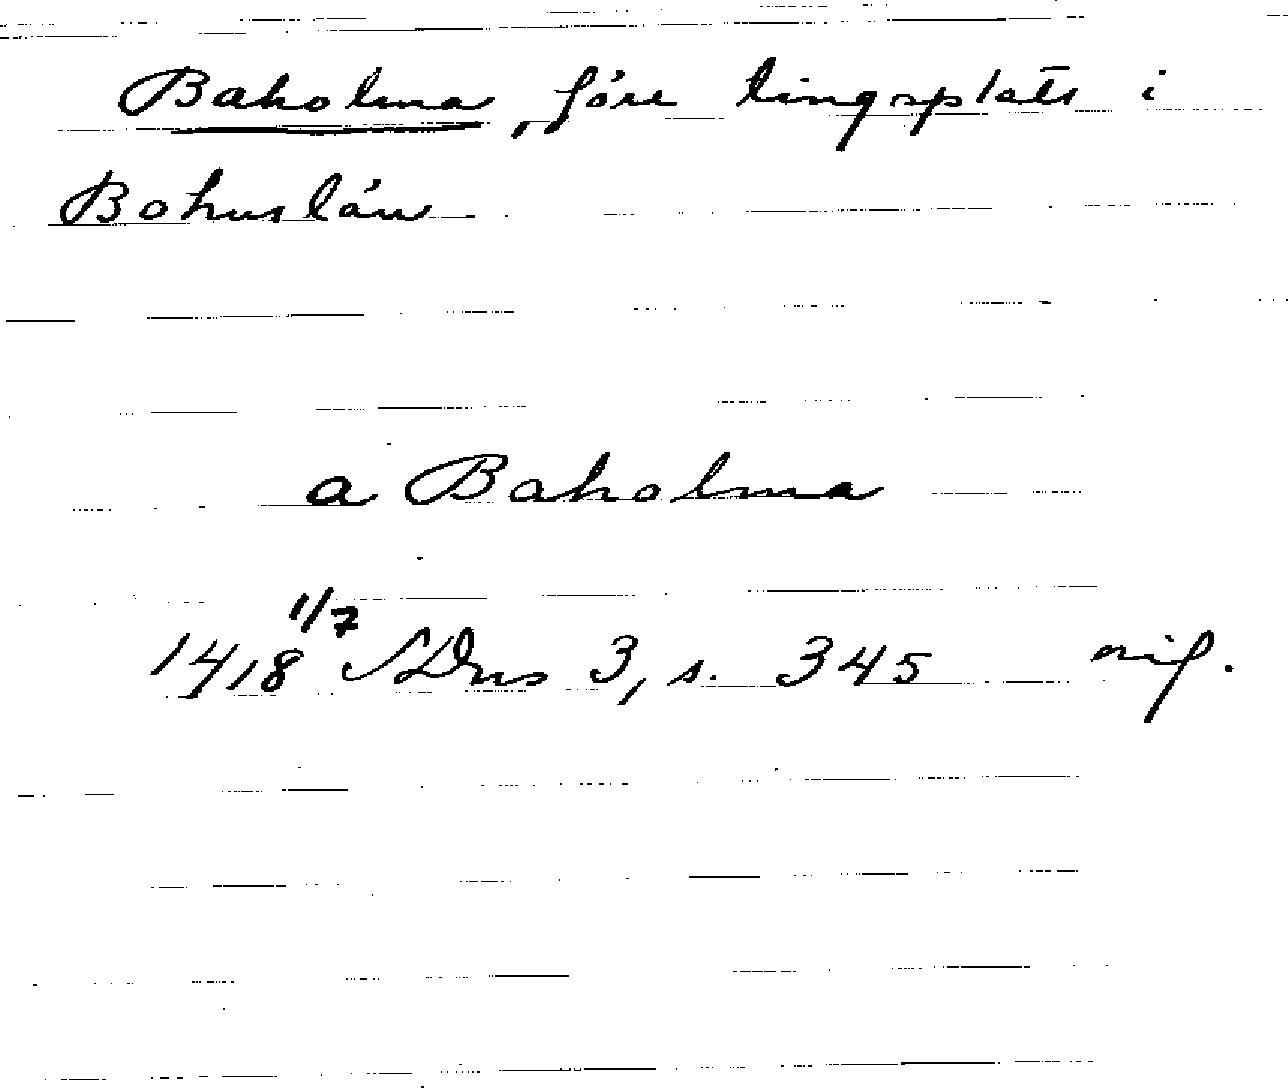 Baholma, förre tingsplats i
Bohuslän
a Baholma
1418 1/7 SDns 3, s. 345 nif.